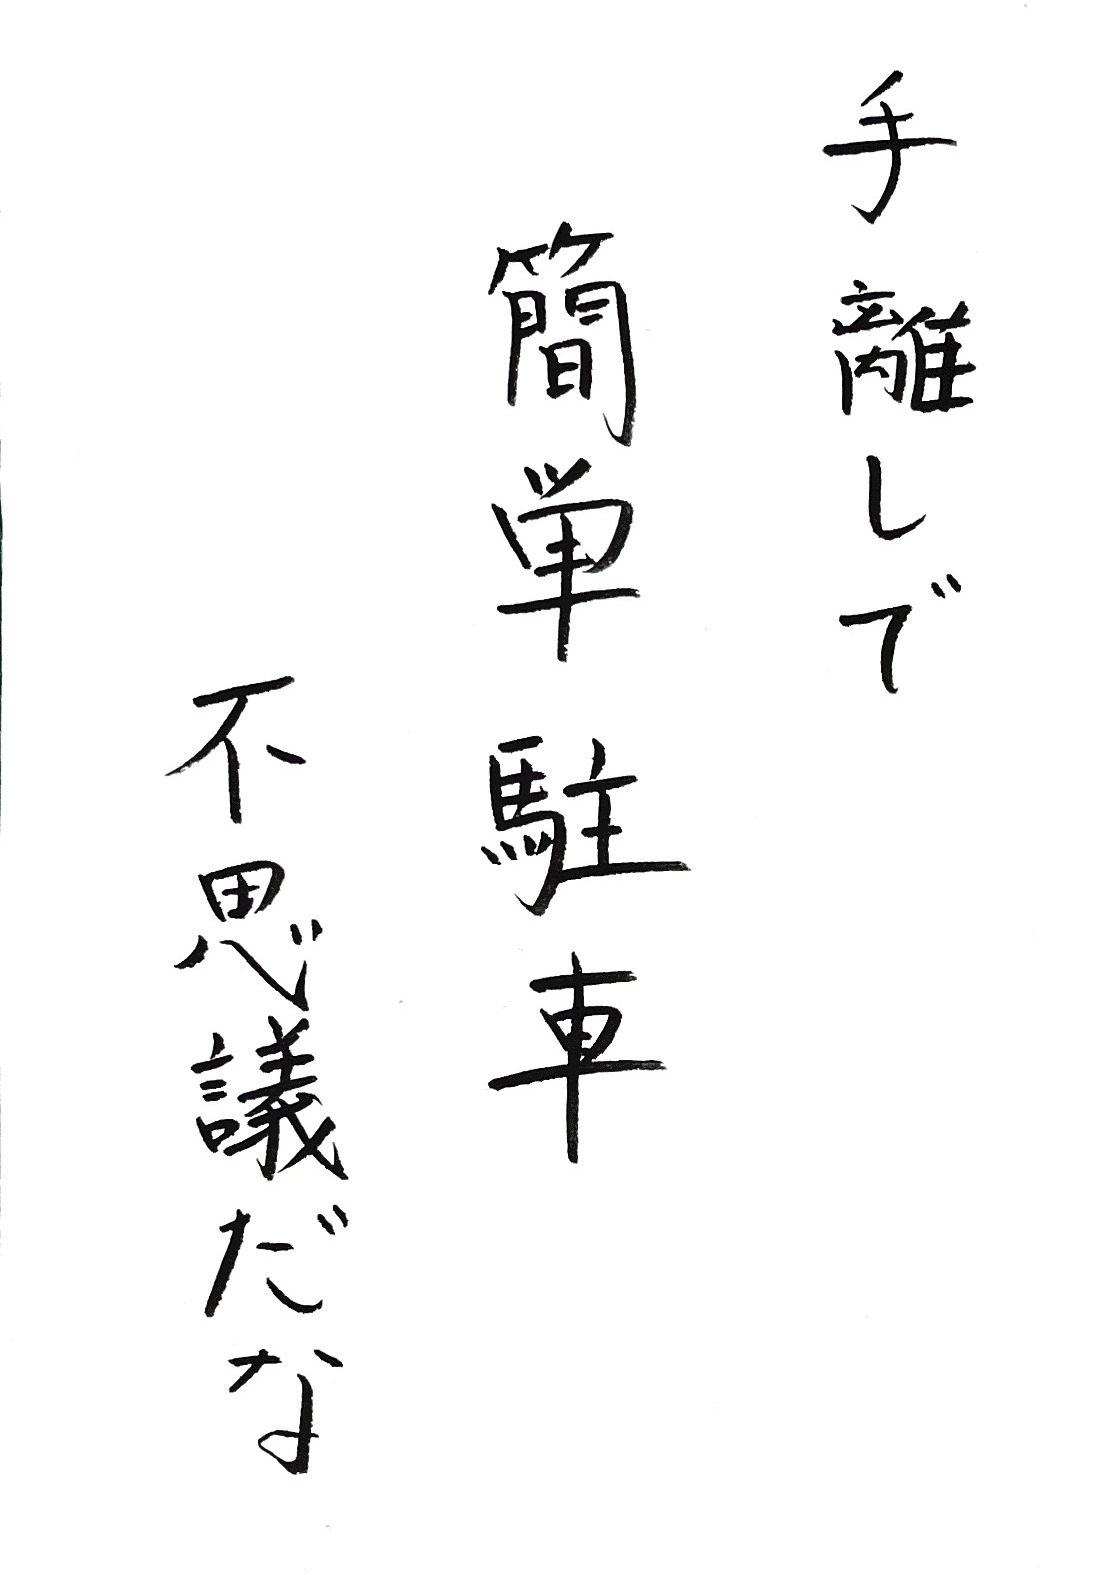 手離しで
簡単駐車
不思議だな